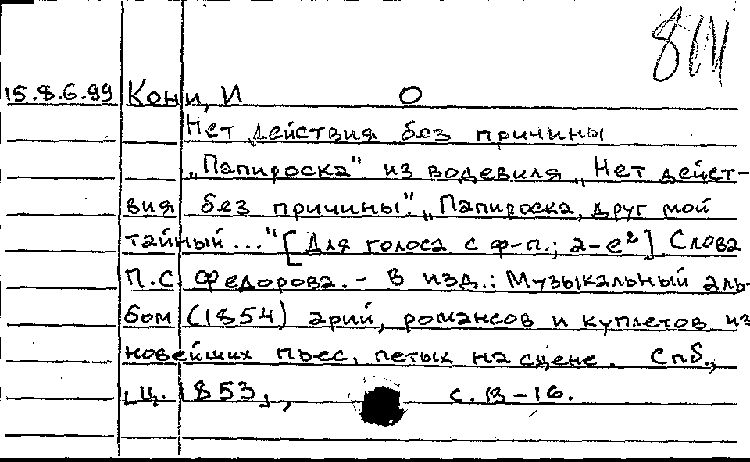 15.8.6.99 Кони, И О
Нет действия без причины
„Папироска" из водевиля „Нет дейст-
вия без причины". „Папироска, друг мой
тайный..." [Для голоса с ф-п.; a-e²]. Слова
П.С Федорова. - В изд.: Музыкальный аль-
бом (1854) арий, романсов и куплетов из
новейших пьес, петых на сцене. Спб.,
[ц. 1853], с. 13-16.